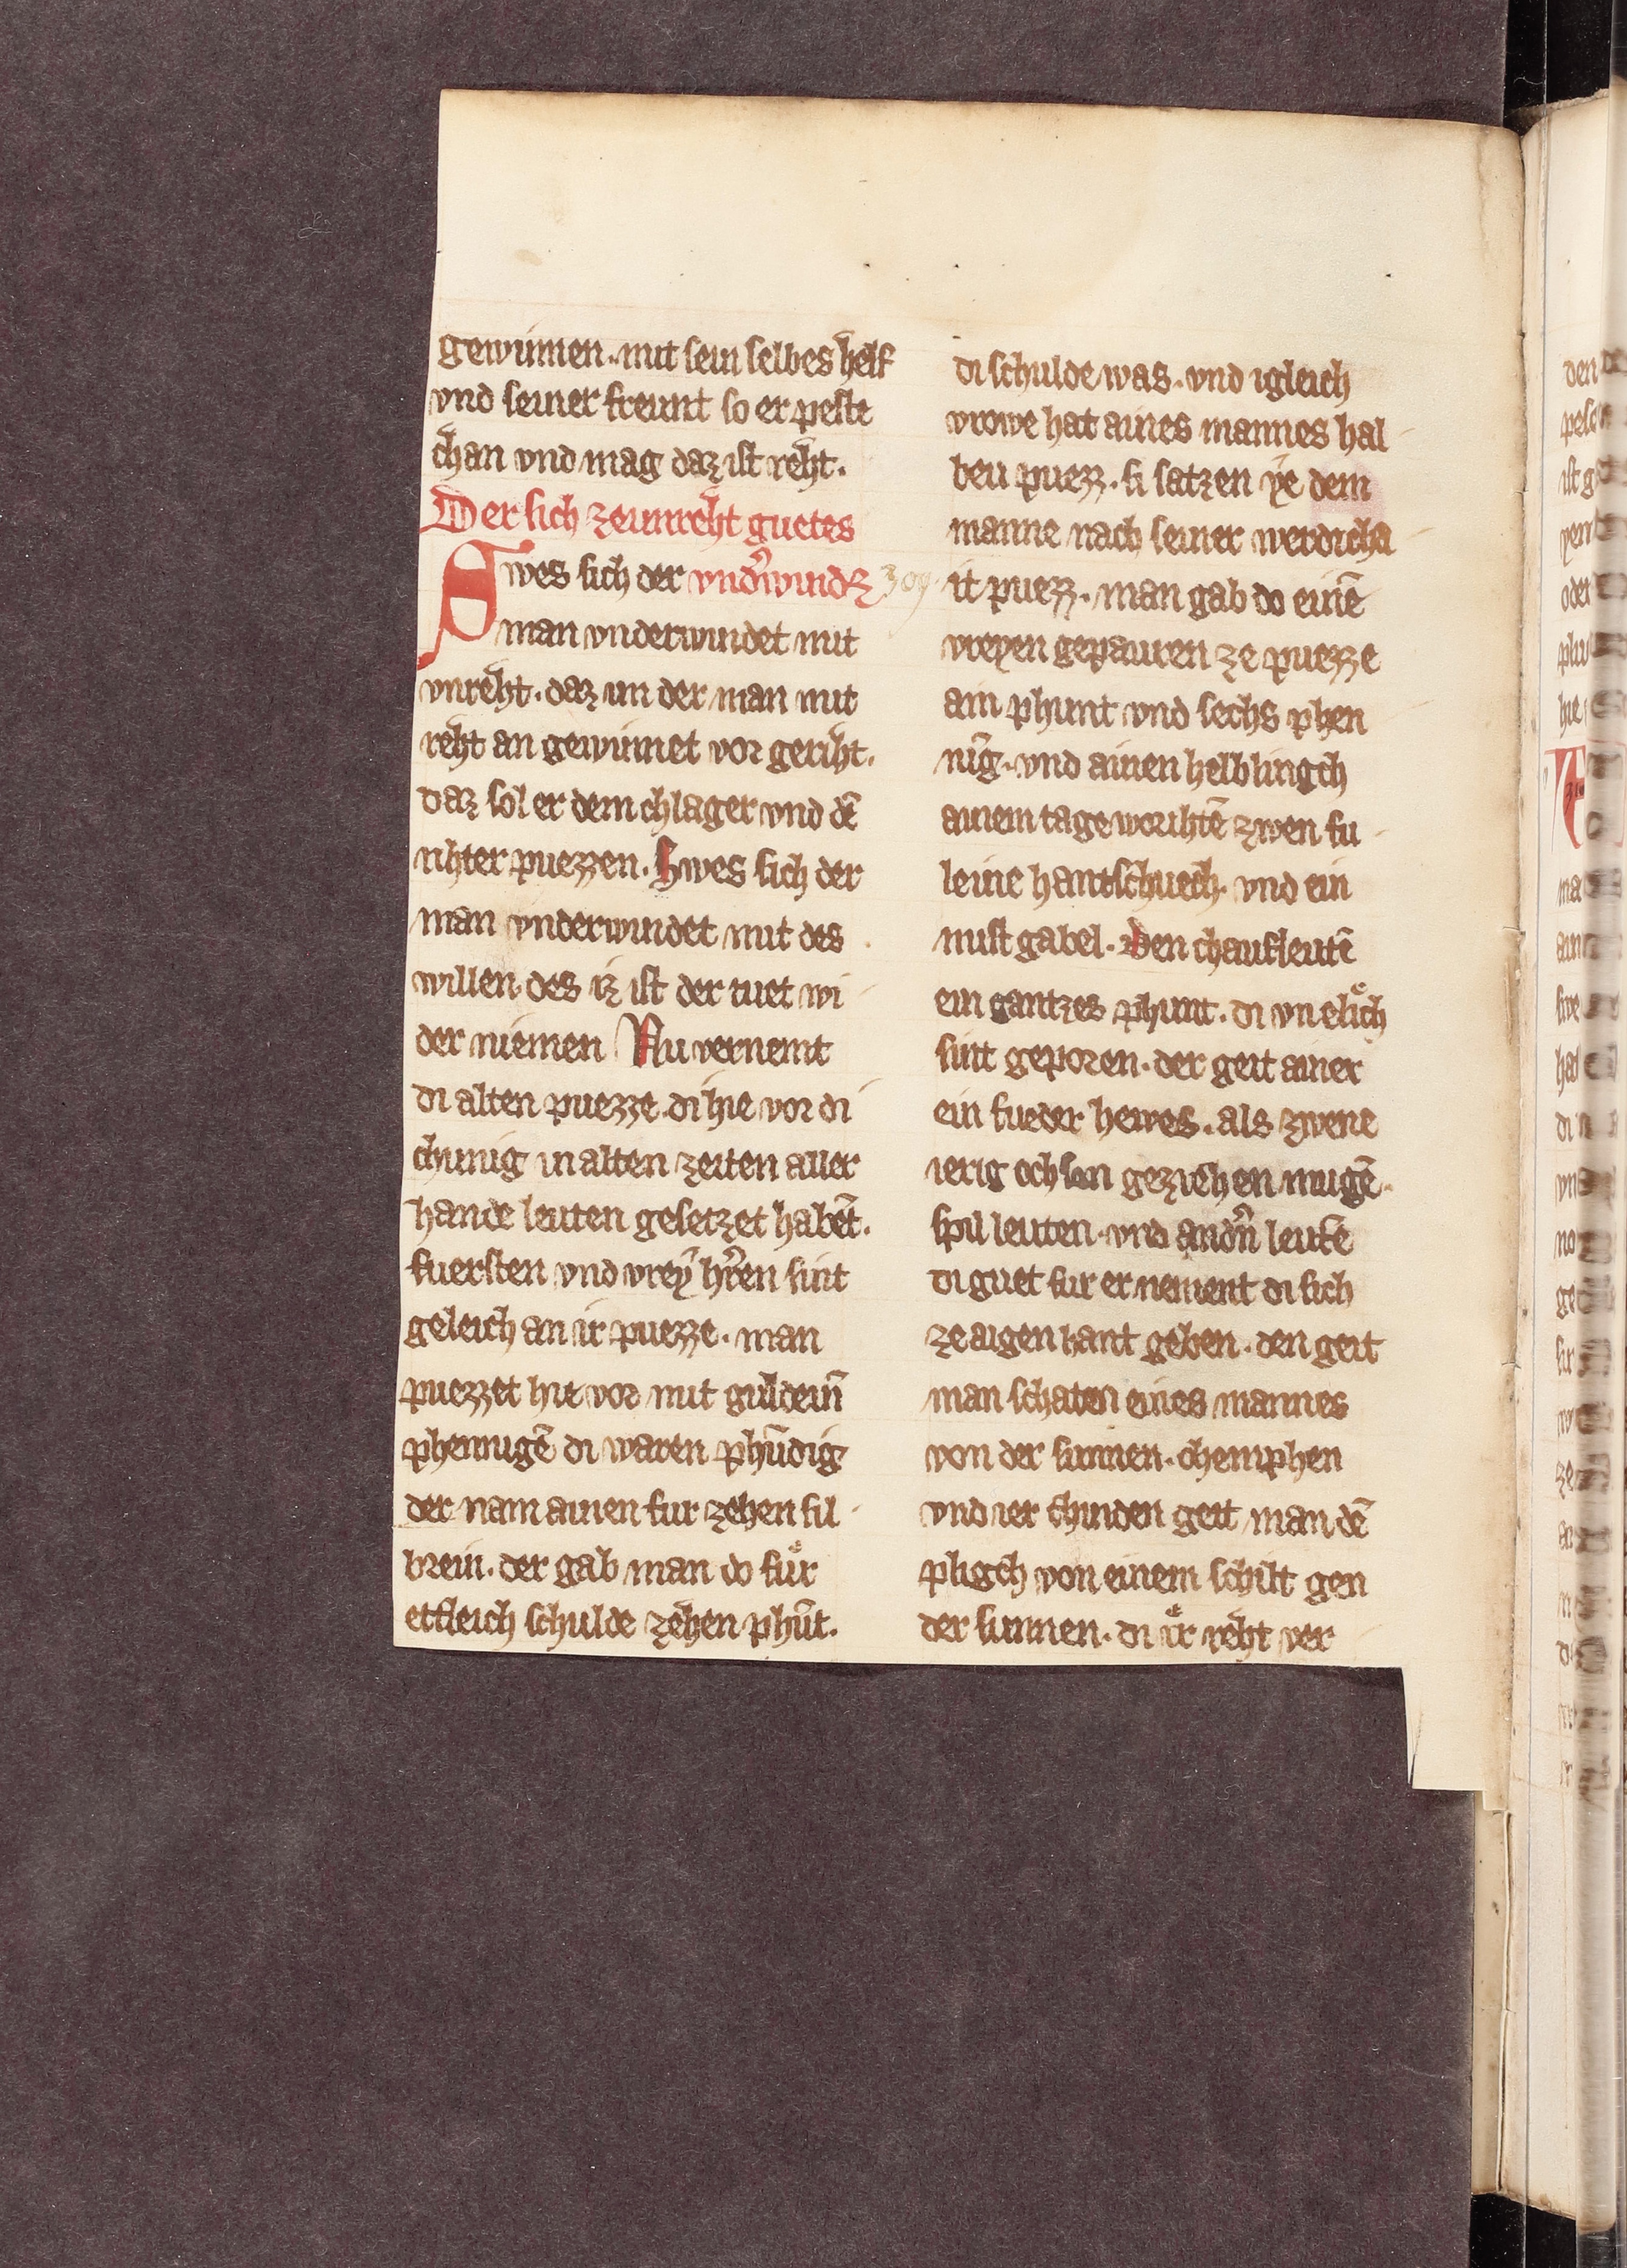 gewinnen. mit sein selbes helf
vnd seiner freunt so er peste
chan vnd mag daz ist reht.
Der sich ze unreht guetes
Swes sich der vnd̄windz 309.
man vnderwindet mit
vnreht. daz im der man mit
reht an gewinnet vor geriht.
daz sol er dem chlager vnd dē
rihter puezzen. Swes sich der
man vnderwindet mit des
willen des iz ist der tuet wi
der niemen Nu vernemt
di alten puezze di hie vor di
chunig in alten zeiten aller
hande leuten gesetzet habēt.
fuersten vnd vrey h̄ren sint
geleich an ir puezze. man
puezzet hie vor mit guldeīn
phennigē di waren phūdig
der nam ainen fur zehen sil
brein. der gab man do fuͤr
etleich schulde zehen phūt.
di schulde was. vnd igleich
vrowe hat aines mannes hal
beu puezz. si satzen ye dem
manne nach seiner werdicha
it puezz. man gab do einē
vreyen gepauren ze puezze
ain phunt vnd sechs phen
nig. vnd ainen helblingch
ainem tageworihtē zwen fu
leine hantschuech. vnd ein
mist gabel. Den chaufleutē
ein gantzes phunt. di vn eliͤch
sint geporen. der geit ainer
ein fueder hewes. als zwene
ierig ochsen geziehen mugē.
spil leuten. vnd andn̄ leutē
di guet fur er nement di sich
ze aigen hant geben. den geit
man schaten eines mannes
von der sunnen. chemphen
vnd ier chinden geit man dē
pligch von einem schilt gen
der sunnen. di iͤr reht ver